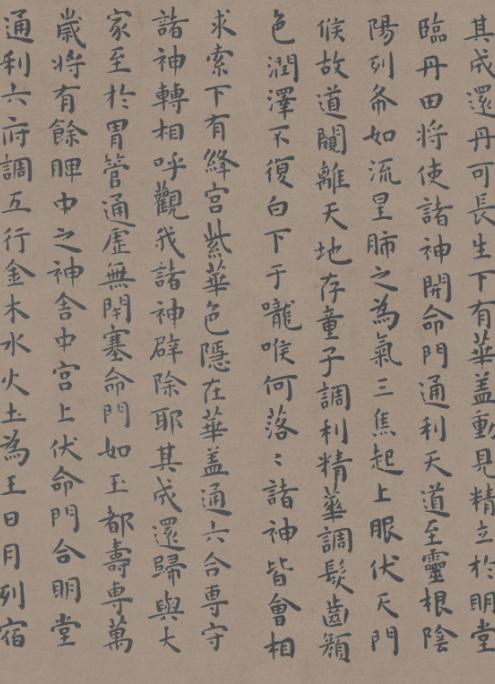 其成還丹可長生下有華盖動見精立於明堂
臨丹田將使諸神開命門通利天道至靈根陰
陽列布如流星肺之為氣三焦起上眼伏天門
候故道闚離天地存童子調利精華調髮齒顏
色潤澤不復白下于嚨喉何落〻諸神皆會相
求索下有絳宮紫華色隱在華盖通六合專守
諸神轉相呼觀我諸神辟除耶其成還歸與大
家至於胃管通虛無閉塞命門如玉都壽專萬
歲將有餘脾中之神舍中宮上伏命門合明堂
通利六府調五行金木水火土為王日月列宿